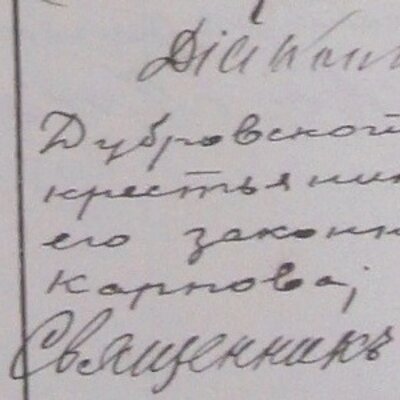 Діакон
Дубровской
крестьянин
его законн
Карпова;
Священникъ